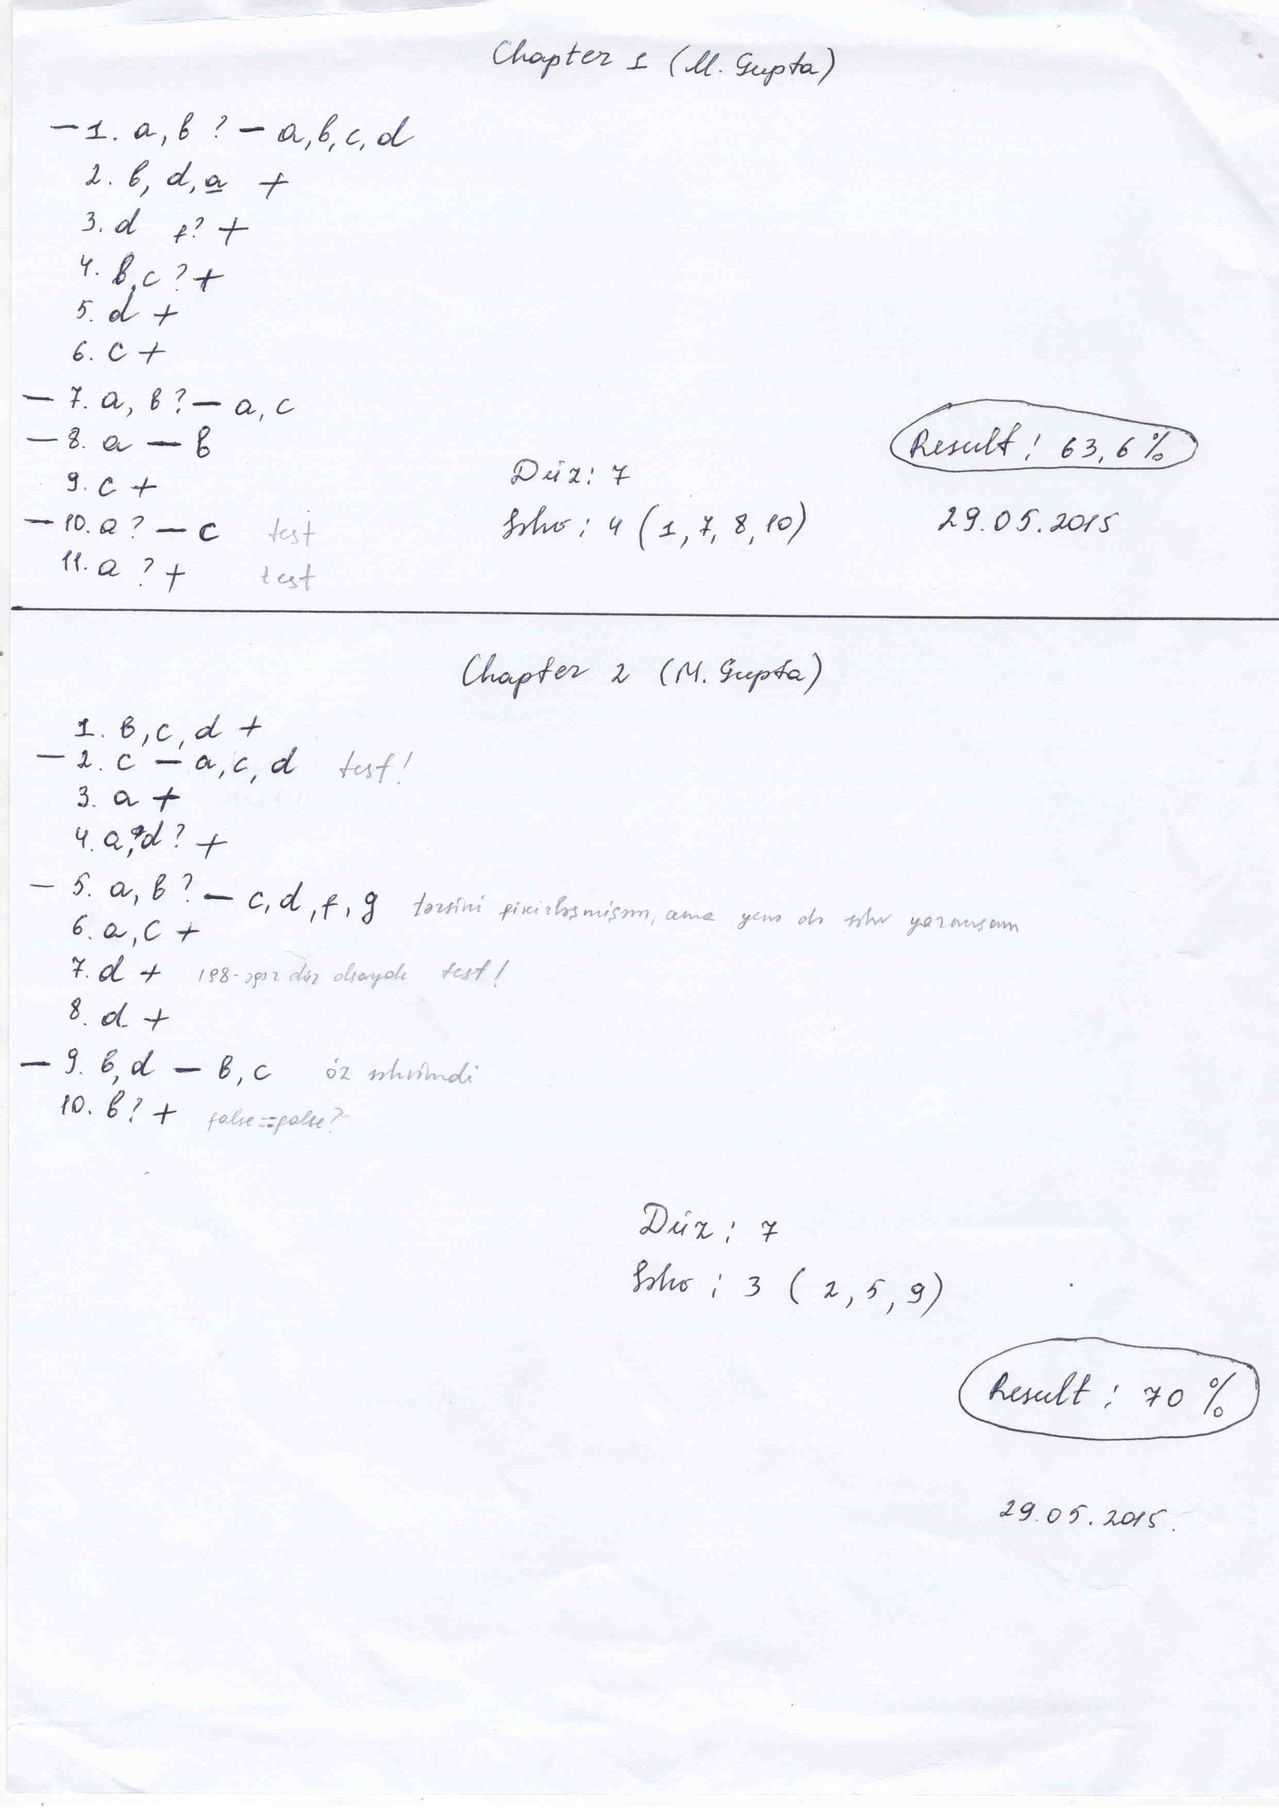 Chapter 1 (M. Gupta)
— 1. a, b ? — a, b, c, d
2. b, d, a +
3. d f? +
4. b, c ? +
5. d +
6. c +
— 7. a, b ? — a, c
— 8. a — b
9. c +
— 10. a ? — c test
11. a ? + test
Düz: 7
Səhv: 4 (1, 7, 8, 10)
Result: 63,6%
29.05.2015
Chapter 2 (M. Gupta)
1. b, c, d +
— 2. c — a, c, d test!
3. a +
4. a, d? +
— 5. a, b ? — c, d, f, g tərsini fikirləşmişəm, ama yenə də səhv yazmışam
6. a, c +
7. d + 198-əgər düz olsaydı test!
8. d +
— 9. b, d — b, c öz səhvimdi
10. b? + false==false?
Düz: 7
Səhv: 3 (2, 5, 9)
Result: 70%
29.05.2015.